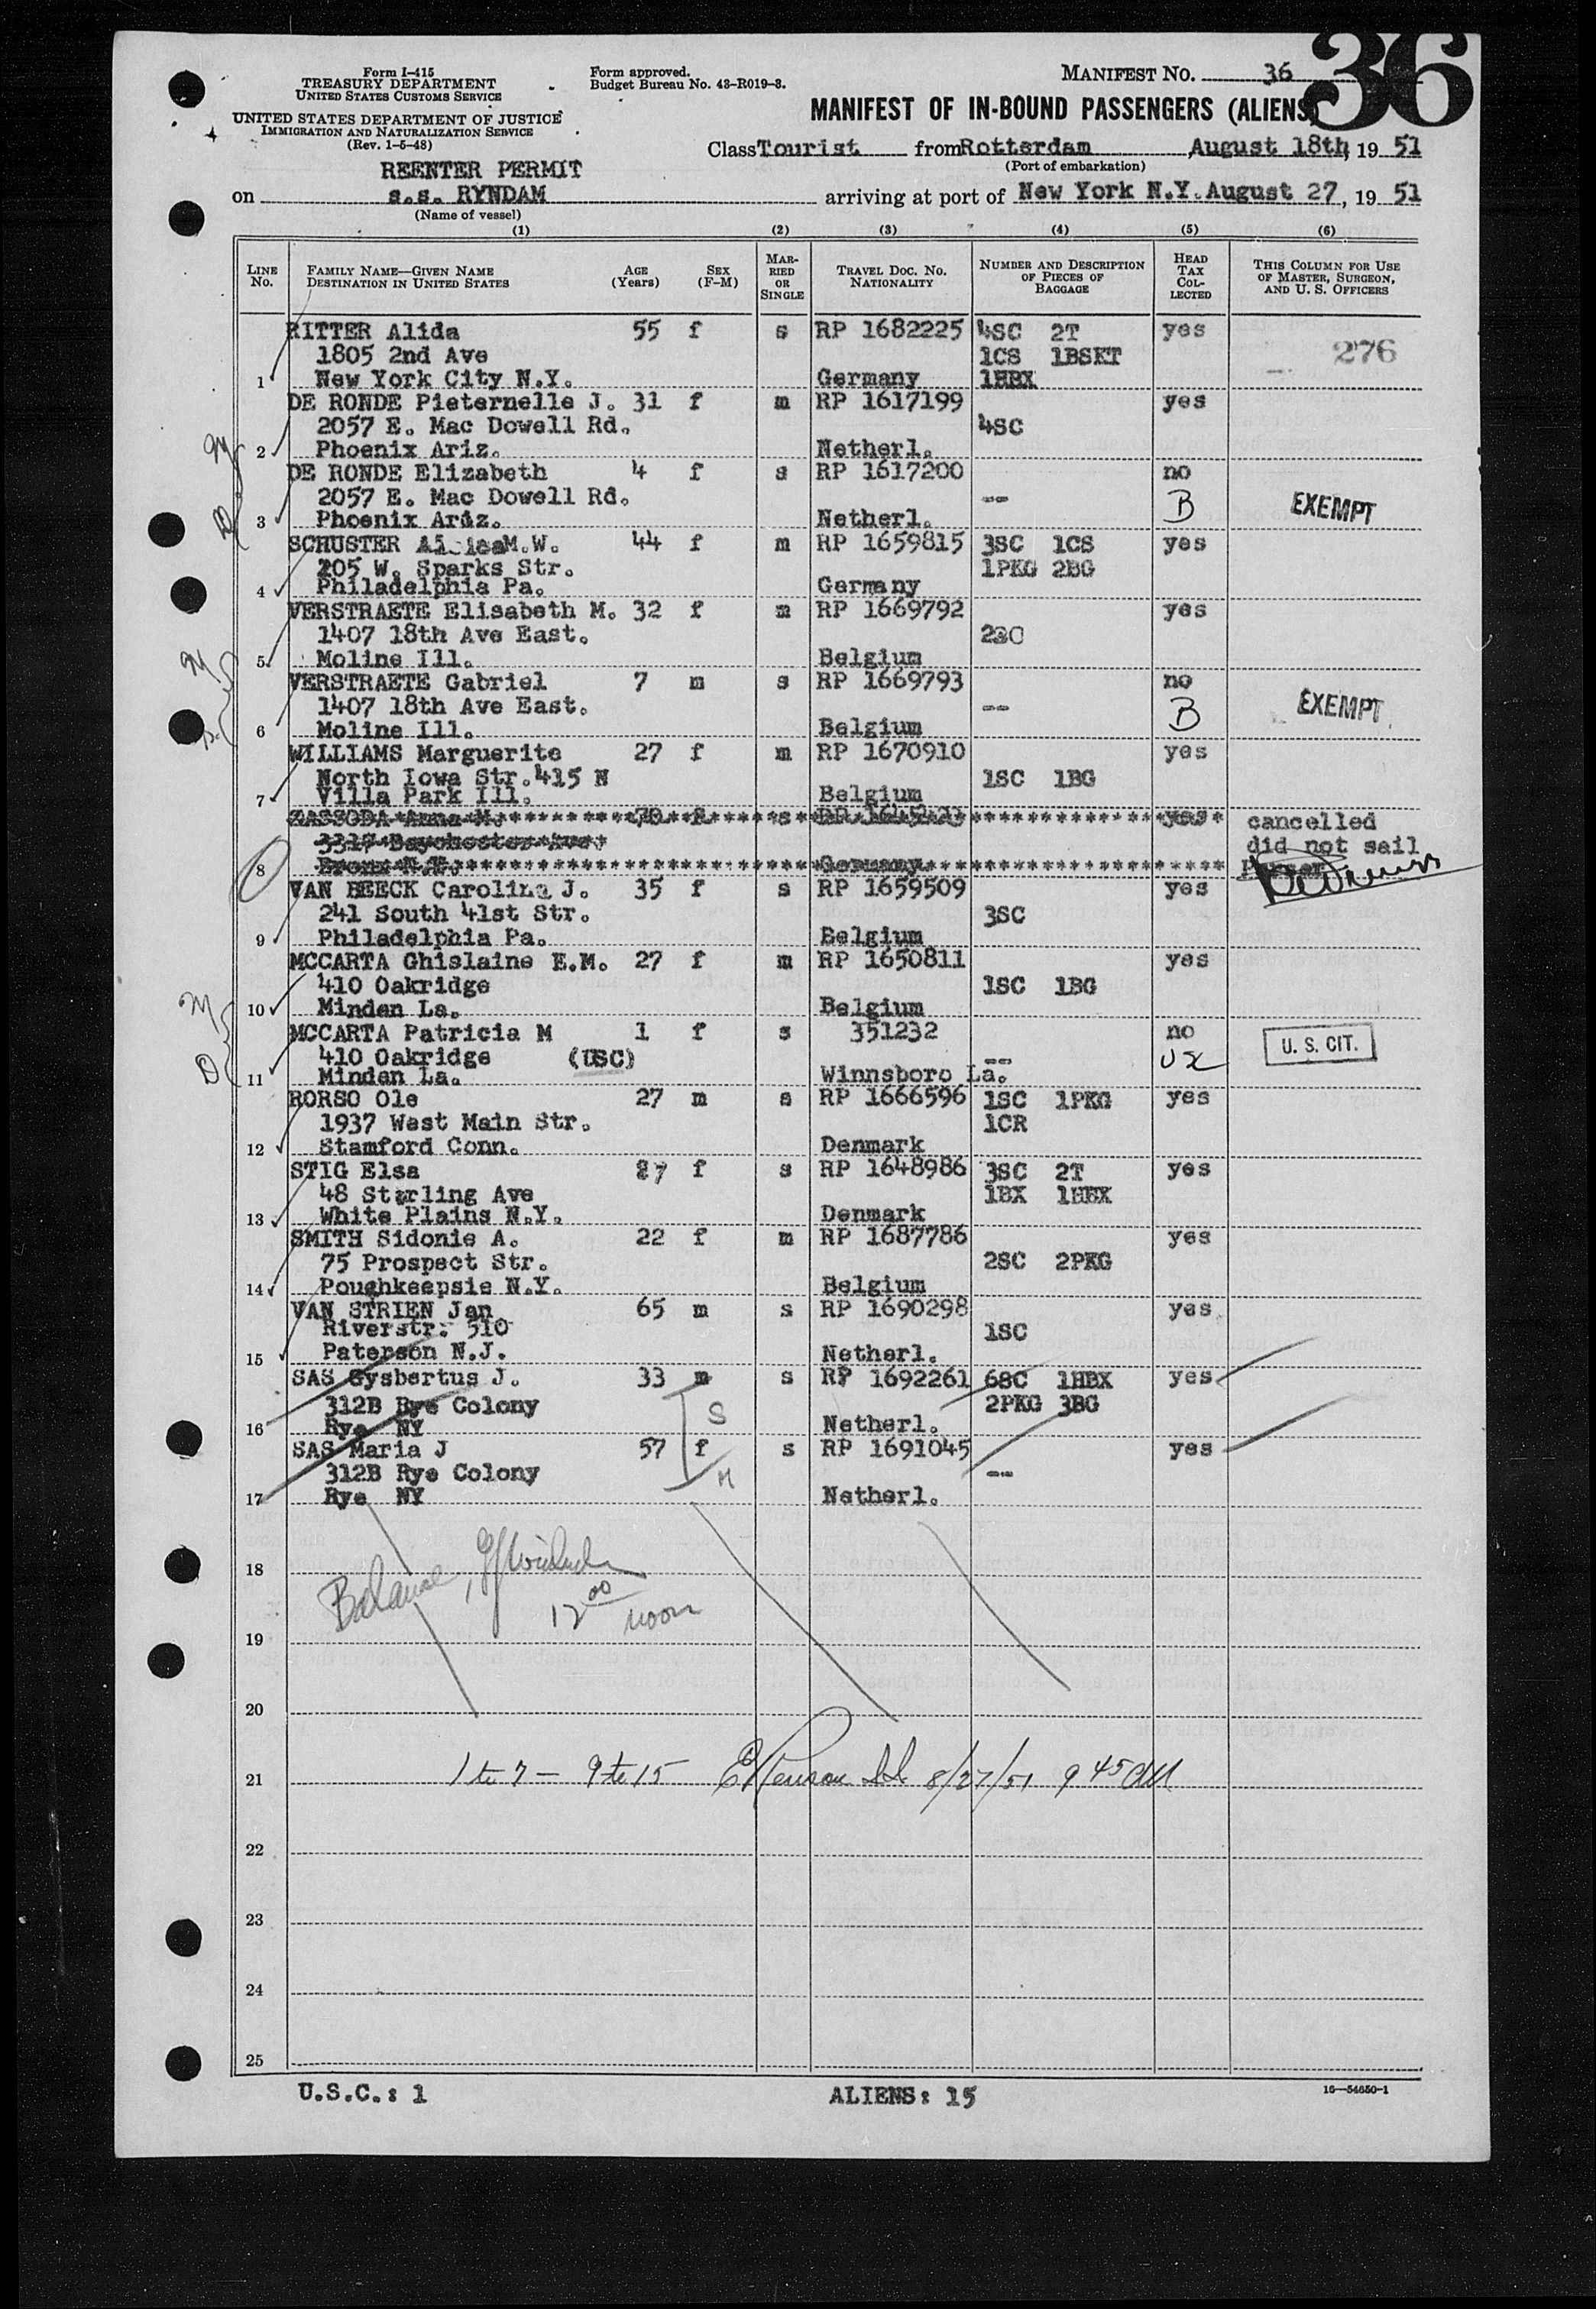 36
Form I-415
TREASURY DEPARTMENT
UNITED STATES CUSTOMS SERVICE
UNITED STATES DEPARTMENT OF JUSTICE
IMMIGRATION AND NATURALIZATION SERVICE
(Rev. 1-5-48)
Form approved.
Budget Bureau No. 43-R019-3.
MANIFEST NO. 36
MANIFEST OF IN-BOUND PASSENGERS (ALIENS)
Class Tourist from Rotterdam August 18th, 19 51
(Port of embarkation)
REENTER PERMIT
on s.s. RYNDAM arriving at port of New York N.Y. August 27, 19 51
(Name of vessel)
(1) (2) (3) (4) (5) (6)
LINE No. FAMILY NAME—GIVEN NAME DESTINATION IN UNITED STATES AGE (Years) SEX (F-M) MARRIED OR SINGLE TRAVEL DOC. NO. NATIONALITY NUMBER AND DESCRIPTION OF PIECES OF BAGGAGE HEAD TAX COLLECTED THIS COLUMN FOR USE OF MASTER, SURGEON, AND U. S. OFFICERS
RITTER Alida 55 f s RP 1682225 4SC 2T yes
1805 2nd Ave 1CS 1BSKT 276
1 New York City N.Y. Germany 1HBX
DE RONDE Pieternelle J. 31 f m RP 1617199 yes
2057 E. Mac Dowell Rd. 4SC
2 Phoenix Ariz. Netherl.
DE RONDE Elizabeth 4 f s RP 1617200 no
2057 E. Mac Dowell Rd. -- B EXEMPT
3 Phoenix Ariz. Netherl.
SCHUSTER M.W. 44 f m RP 1659815 3SC 1CS yes
205 W. Sparks Str. 1PKG 2BG
4 Philadelphia Pa. Germany
VERSTRAETE Elisabeth M. 32 f m RP 1669792 yes
1407 18th Ave East. 2SC
5 Moline Ill. Belgium
VERSTRAETE Gabriel 7 m s RP 1669793 no
1407 18th Ave East. -- B EXEMPT
6 Moline Ill. Belgium
WILLIAMS Marguerite 27 f m RP 1670910 yes
North Iowa Str. 415 N 1SC 1BG
7 Villa Park Ill. Belgium
ZASSODA Anna M. 70 f s RP yes cancelled
3317 Baychester Ave. did not sail
8 Bronx N.Y. Germany
VAN BEECK Carolina J. 35 f s RP 1659509 yes
241 South 41st Str. 3SC
9 Philadelphia Pa. Belgium
MCCARTA Ghislaine E.M. 27 f m RP 1650811 yes
410 Oakridge 1SC 1BG
10 Minden La. Belgium
MCCARTA Patricia M 1 f s 351232 no U. S. CIT.
410 Oakridge (USC) --
11 Minden La. Winnsboro La.
RORSO Ole 27 m s RP 1666596 1SC 1PKG yes
1937 West Main Str. 1CR
12 Stamford Conn. Denmark
STIG Elsa 27 f s RP 1648986 3SC 2T yes
48 Starling Ave 1BX 1HBX
13 White Plains N.Y. Denmark
SMITH Sidonie A. 22 f m RP 1687786 yes
75 Prospect Str. 2SC 2PKG
14 Poughkeepsie N.Y. Belgium
VAN STRIEN Jan 65 m s RP 1690298 yes
Riverstr. 510 1SC
15 Paterson N.J. Netherl.
SAS Gysbertus J. 33 m s RP 1692261 6SC 1HBX yes
312B Rye Colony S 2PKG 3BG
16 Rye NY Netherl.
SAS Maria J 57 f s RP 1691045 yes
312B Rye Colony M --
17 Rye NY Netherl.
18
Balance, 12 00 noon
19
20
21 1 to 7 - 9 to 15 8/27/51 9 45 AM
22
23
24
25
U.S.C.: 1 ALIENS: 15 16—54650-1